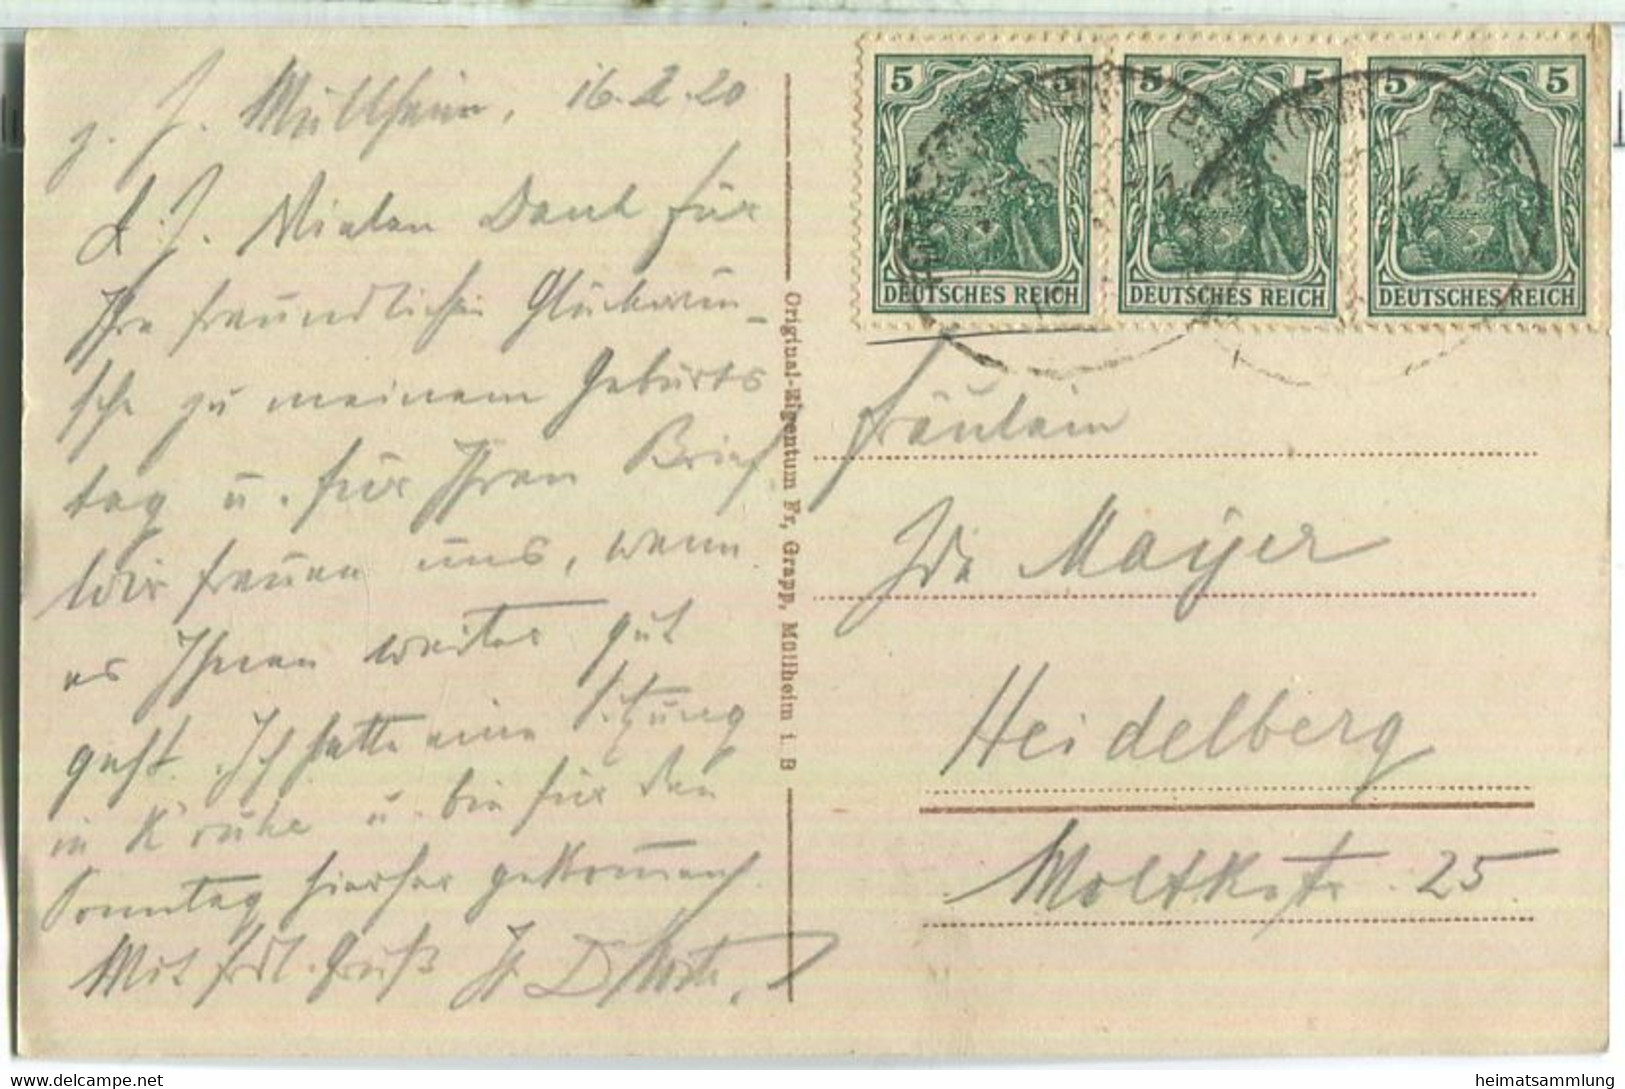 z. Z. Müllheim, 16.2.20
L. F. Vielen Dank für
Ihre freundlichen Glückwün-
sche zu meinem Geburts
tag u. für Ihren Brief
Wir freuen uns, wenn
es Ihnen weiter gut
geht. Ich hatte eine Sitzung
in K'ruhe u. bin für den
Sonntag hierher gekommen.
Mit frdl. Gruß Ihr
Original-Eigentum Fr. Grapp, Müllheim i. B
5 5
DEUTSCHES REICH
5 5
DEUTSCHES REICH
5 5
DEUTSCHES REICH
Fräulein
Ida Mayer
Heidelberg
Moltkestr. 25
heimatsammlung